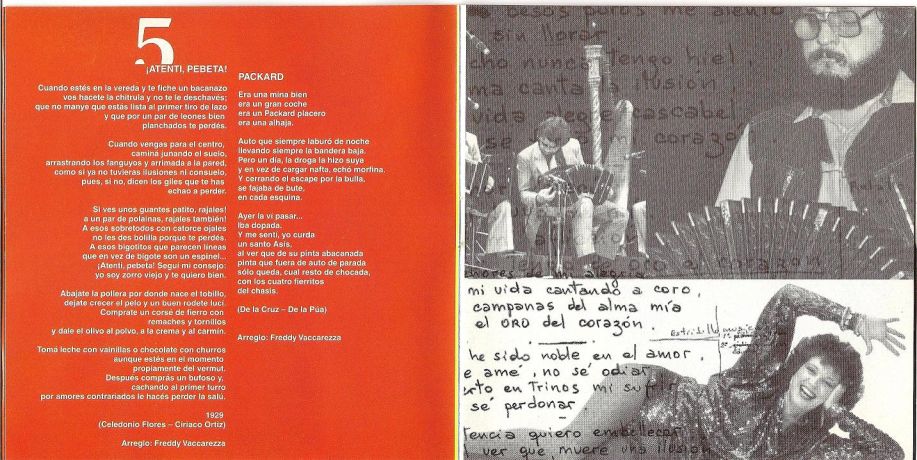 5
¡ATENTI, PEBETA!
Cuando estés en la vereda y te fiche un bacanazo
vos hacete la chitrula y no te le deschavés;
que no manye que estás lista al primer tiro de lazo
y que por un par de leones bien
planchados te perdés.
Cuando vengas para el centro,
caminá junando el suelo,
arrastrando los fanguyos y arrimada a la pared,
como si ya no tuvieras ilusiones ni consuelo,
pues, si no, dicen los giles que te has
echao a perder.
Si ves unos guantes patito, rajales!
a un par de polainas, rajales también!
A esos sobretodos con catorce ojales
no les des bolilla porque te perdés.
A esos bigotitos que parecen líneas
que en vez de bigote son un espinel...
¡Atenti, pebeta! Seguí mi consejo:
yo soy zorro viejo y te quiero bien.
Abajate la pollera por donde nace el tobillo,
dejate crecer el pelo y un buen rodete lucí.
Comprate un corsé de fierro con
remaches y tornillos
y dale el olivo al polvo, a la crema y al carmín.
Tomá leche con vainillas o chocolate con churros
aunque estés en el momento
propiamente del vermut.
Después comprás un bufoso y,
cachando al primer turro
por amores contrariados le hacés perder la salú.
1929
(Celedonio Flores – Ciriaco Ortiz)
Arreglo: Freddy Vaccarezza
PACKARD
Era una mina bien
era un gran coche
era un Packard placero
era una alhaja.
Auto que siempre laburó de noche
llevando siempre la bandera baja.
Pero un día, la droga la hizo suya
y en vez de cargar nafta, echó morfina.
Y cerrando el escape por la bulla,
se fajaba de bute,
en cada esquina.
Ayer la vi pasar...
Iba dopada.
Y me sentí, yo curda
un santo Asís,
al ver que de su pinta abacanada
pinta que fuera de auto de parada
sólo queda, cual resto de chocada,
con los cuatro fierritos
del chasis.
(De la Cruz – De la Púa)
Arreglo: Freddy Vaccarezza
besos puros me alento
sin llorar
cho nunca tengo hiel
ma canta la ilusión
mi vida cantando a coro,
campanas del alma mía
el ORO del corazón.
he sido noble en el amor,
e amé, no sé odiar
en Trinos mi sufrir
sé perdonar
tencia quiero embellecer
ver que muere una ilusión